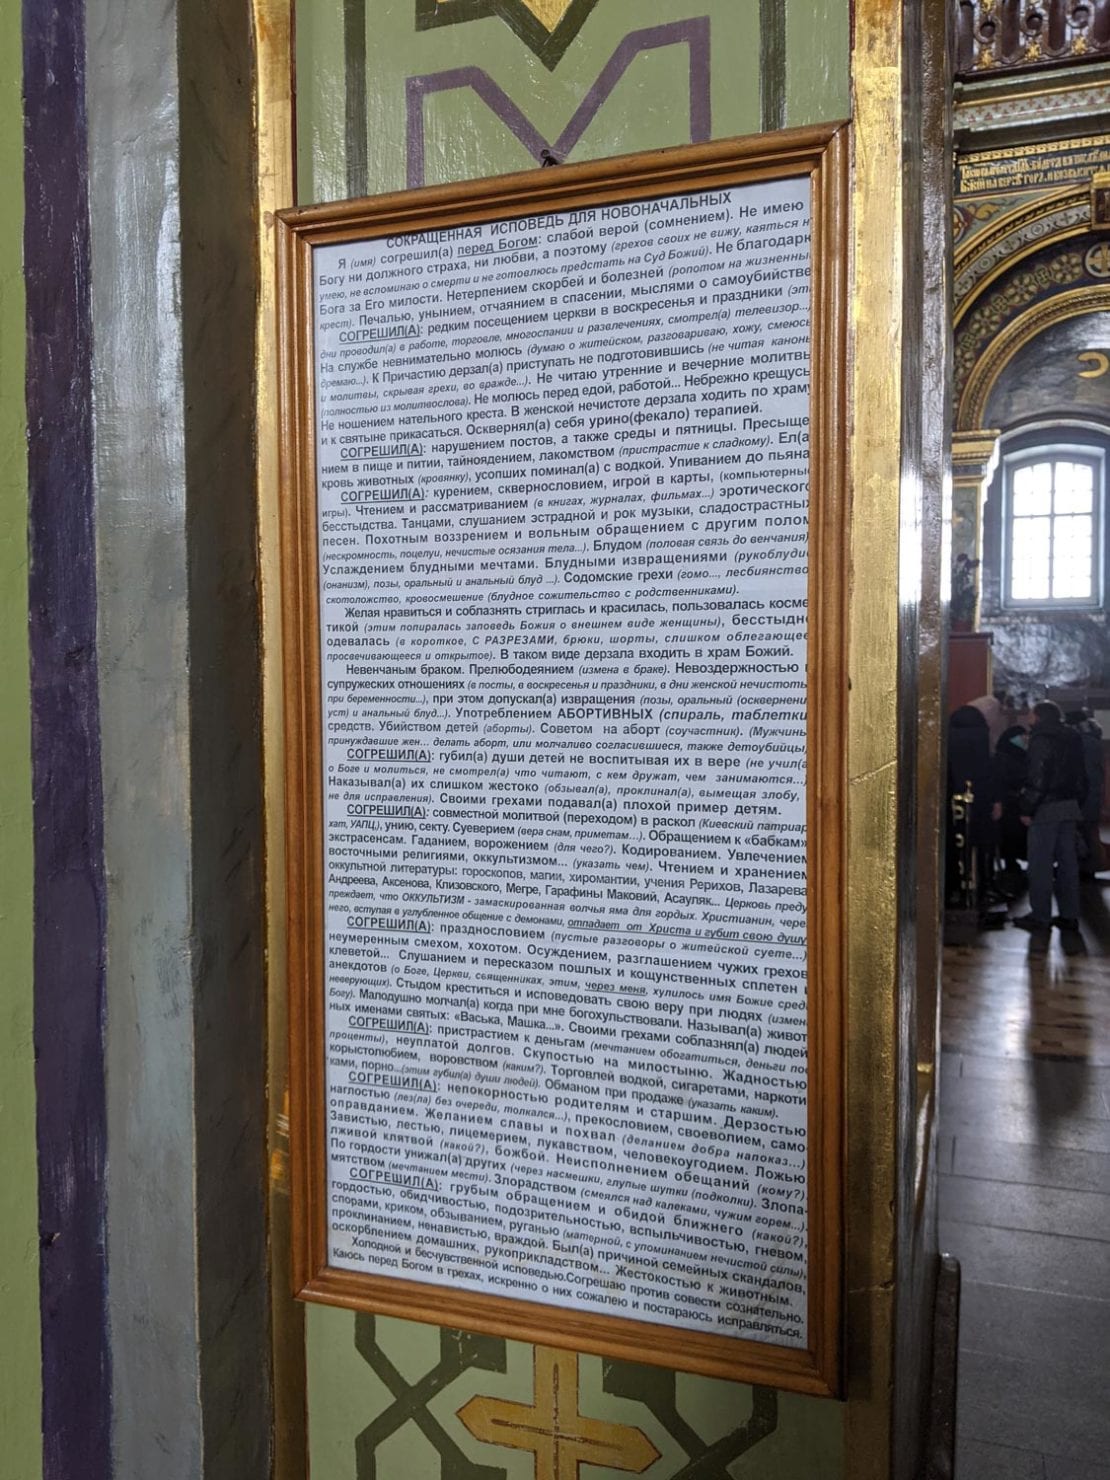 СОКРАЩЕННАЯ ИСПОВЕДЬ ДЛЯ НОВОНАЧАЛЬНЫХ
Я (имя) согрешил(а) перед Богом: слабой верой (сомнением). Не имею
Богу ни должного страха, ни любви, а поэтому (грехов своих не вижу, каяться н
умею, не вспоминаю о смерти и не готовлюсь предстать на Суд Божий). Не благодарю
Бога за Его милости. Нетерпением скорбей и болезней (ропотом на жизненны
крест). Печалью, унынием, отчаянием в спасении, мыслями о самоубийстве
СОГРЕШИЛ(А): редким посещением церкви в воскресенья и праздники (эти
дни проводил(а) в работе, торговле, многоспании и развлечениях, смотрел(а) телевизор...)
На службе невнимательно молюсь (думаю о житейском, разговариваю, хожу, смеюсь
дремаю...). К Причастию дерзал(а) приступать не подготовившись (не читая каноны
и молитвы, скрывая грехи, во вражде...). Не читаю утренние и вечерние молитвы
(полностью из молитвослова). Не молюсь перед едой, работой... Небрежно крещусь
Не ношением нательного креста. В женской нечистоте дерзала ходить по храму
и к святыне прикасаться. Осквернял(а) себя урино(фекало) терапией.
СОГРЕШИЛ(А): нарушением постов, а также среды и пятницы. Пресыще
нием в пище и питии, тайноядением, лакомством (пристрастие к сладкому). Ел(а
кровь животных (кровянку), усопших поминал(а) с водкой. Упиванием до пьяна
СОГРЕШИЛ(А): курением, сквернословием, игрой в карты, (компьютерные
игры). Чтением и рассматриванием (в книгах, журналах, фильмах...) эротического
бесстыдства. Танцами, слушанием эстрадной и рок музыки, сладострастных
песен. Похотным воззрением и вольным обращением с другим полом
(нескромность, поцелуи, нечистые осязания тела...). Блудом (половая связь до венчания)
Услаждением блудными мечтами. Блудными извращениями (рукоблудие
(онанизм), позы, оральный и анальный блуд ...). Содомские грехи (гомо..., лесбиянство
скотоложство, кровосмешение (блудное сожительство с родственниками).
Желая нравиться и соблазнять стриглась и красилась, пользовалась косме
тикой (этим попиралась заповедь Божия о внешнем виде женщины), бесстыдн
одевалась (в короткое, С РАЗРЕЗАМИ, брюки, шорты, слишком облегающее
просвечивающееся и открытое). В таком виде дерзала входить в храм Божий.
Невенчаным браком. Прелюбодеянием (измена в браке). Невоздержностью
супружеских отношениях (в посты, в воскресенья и праздники, в дни женской нечистоты
при беременности...), при этом допускал(а) извращения (позы, оральный (осквернени
уст) и анальный блуд...). Употреблением АБОРТИВНЫХ (спираль, таблетки
средств. Убийством детей (аборты). Советом на аборт (соучастник). (Мужчины
принуждавшие жен... делать аборт, или молчаливо согласившиеся, также детоубийцы
СОГРЕШИЛ(А): губил(а) души детей не воспитывая их в вере (не учил(а
о Боге и молиться, не смотрел(а) что читают, с кем дружат, чем занимаются...)
Наказывал(а) их слишком жестоко (обзывал(а), проклинал(а), вымещая злобу,
не для исправления). Своими грехами подавал(а) плохой пример детям.
СОГРЕШИЛ(А): совместной молитвой (переходом) в раскол (Киевский патриар
хат, УАПЦ,), унию, секту. Суеверием (вера снам, приметам...). Обращением к «бабкам»
экстрасенсам. Гаданием, ворожением (для чего?). Кодированием. Увлечением
восточными религиями, оккультизмом... (указать чем). Чтением и хранением
оккультной литературы: гороскопов, магии, хиромантии, учения Рерихов, Лазарева
Андреева, Аксенова, Клизовского, Мегре, Гарафины Маковий, Асауляк... Церковь преду
преждает, что ОККУЛЬТИЗМ - замаскированная волчья яма для гордых. Христианин, чере
него, вступая в углубленное общение с демонами, отпадает от Христа и губит свою душу
СОГРЕШИЛ(А): празднословием (пустые разговоры о житейской суете...)
неумеренным смехом, хохотом. Осуждением, разглашением чужих грехов
клеветой... Слушанием и пересказом пошлых и кощунственных сплетен
анекдотов (о Боге, Церкви, священниках, этим, через меня, хулилось имя Божие сред
неверующих). Стыдом креститься и исповедовать свою веру при людях (измен
Богу). Малодушно молчал(а) когда при мне богохульствовали. Называл(а) живот
ных именами святых: «Васька, Машка...». Своими грехами соблазнял(а) людей
СОГРЕШИЛ(А): пристрастием к деньгам (мечтанием обогатиться, деньги под
проценты), неуплатой долгов. Скупостью на милостыню. Жадностью
корыстолюбием, воровством (каким?). Торговлей водкой, сигаретами, наркоти
ками, порно...(этим губил(а) души людей). Обманом при продаже (указать каким).
СОГРЕШИЛ(А): непокорностью родителям и старшим. Дерзостью
наглостью (лез(ла) без очереди, толкался...), прекословием, своеволием, само-
оправданием. Желанием славы и похвал (деланием добра напоказ...)
Завистью, лестью, лицемерием, лукавством, человекоугодием. Ложью
лживой клятвой (какой?), божбой. Неисполнением обещаний (кому?)
По гордости унижал(а) других (через насмешки, глупые шутки (подколки). Злопа-
мятством (мечтанием мести). Злорадством (смеялся над калеками, чужим горем...)
СОГРЕШИЛ(А): грубым обращением и обидой ближнего (какой?),
гордостью, обидчивостью, подозрительностью, вспыльчивостью, гневом,
спорами, криком, обзыванием, руганью (матерной, с упоминанием нечистой силы),
проклинанием, ненавистью, враждой. Был(а) причиной семейных скандалов,
оскорблением домашних, рукоприкладством... Жестокостью к животным.
Холодной и бесчувственной исповедью.Согрешаю против совести сознательно.
Каюсь перед Богом в грехах, искренно о них сожалею и постараюсь исправляться.